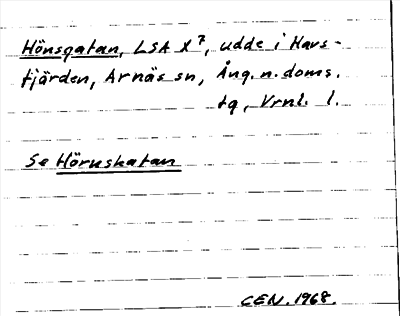 Hönsgatan, LSA X 7, udde i Havs-
fjärden, Arnäs sn, Ång. n. doms.
tg, Vrnl. l.
Se Hörnskatan
CEN. 1968.